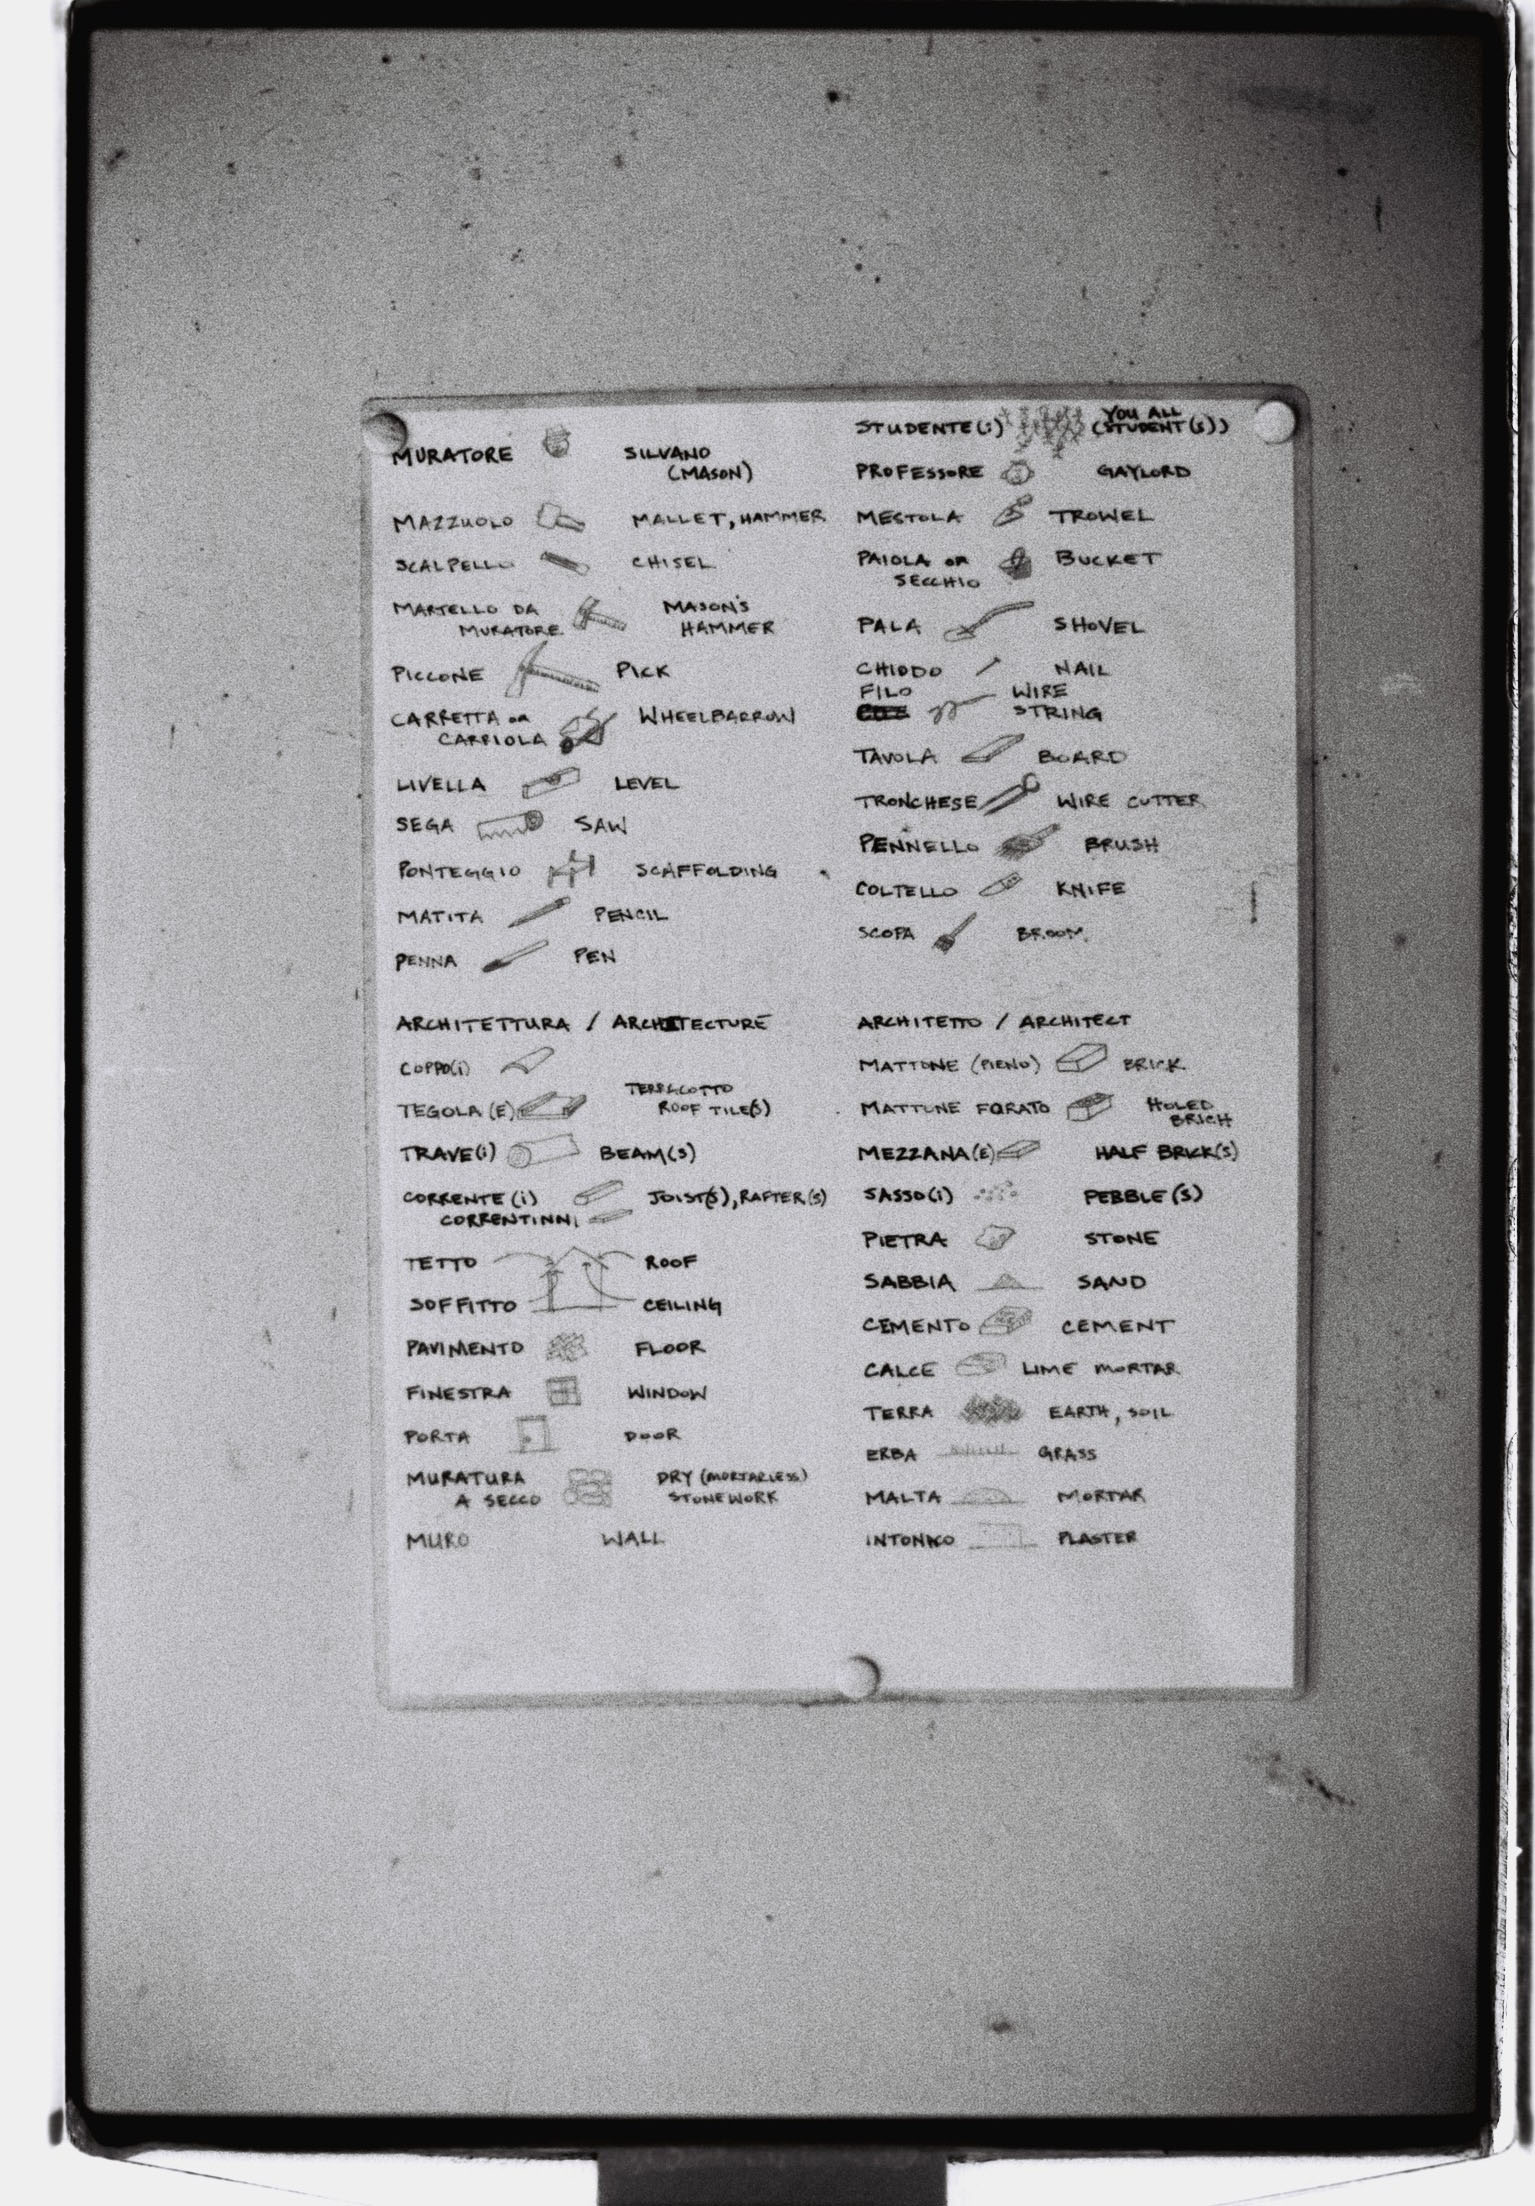 MURATORE SILVANO
(MASON)
MAZZUOLO MALLET, HAMMER
SCALPELLO CHISEL
MARTELLO DA MASON'S
MURATORE HAMMER
PICCONE PICK
CARRETTA OR WHEELBARROW
CARRIOLA
LIVELLA LEVEL
SEGA SAW
PONTEGGIO SCAFFOLDING
MATITA PENCIL
PENNA PEN
STUDENTE(i) YOU ALL
(STUDENT(S))
PROFESSORE GAYLORD
MESTOLA TROWEL
PAIOLA OR BUCKET
SECCHIO
PALA SHOVEL
CHIODO NAIL
FILO WIRE
STRING
TAVOLA BOARD
TRONCHESE WIRE CUTTER
PENNELLO BRUSH
COLTELLO KNIFE
SCOPA BROOM
ARCHITETTURA / ARCHITECTURE
COPPO(i)
TERRACOTTO
TEGOLA (E) ROOF TILE(S)
TRAVE(i) BEAM(S)
CORRENTE (i) JOIST(S), RAFTER(S)
CORRENTINNI
TETTO ROOF
SOFFITTO CEILING
PAVIMENTO FLOOR
FINESTRA WINDOW
PORTA DOOR
MURATURA DRY (MORTARLESS)
A SECCO STONEWORK
MURO WALL
ARCHITETTO / ARCHITECT
MATTONE (PIENO) BRICK
MATTONE FORATO HOLED
BRICH
MEZZANA(E) HALF BRICK(S)
SASSO(i) PEBBLE(S)
PIETRA STONE
SABBIA SAND
CEMENTO CEMENT
CALCE LIME MORTAR
TERRA EARTH, SOIL
ERBA GRASS
MALTA MORTAR
INTONICO PLASTER